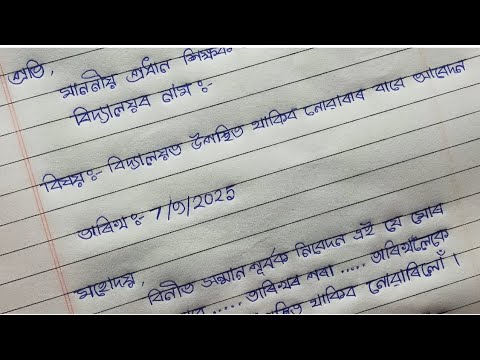 প্ৰতি,
মাননীয় প্ৰধান শিক্ষক
বিদ্যালয়ৰ নাম :-
বিষয়ঃ- বিদ্যালয়ত উপস্থিত থাকিব নোৱাৰাৰ বাবে আবেদন
তাৰিখঃ- 7/9/2025
মহোদয়,
বিনীত সন্মান পূৰ্বক নিবেদন এই যে মোৰ
..... তাৰিখৰ পৰা ..... তাৰিখলৈকে
থাকিব নোৱাৰিলোঁ।